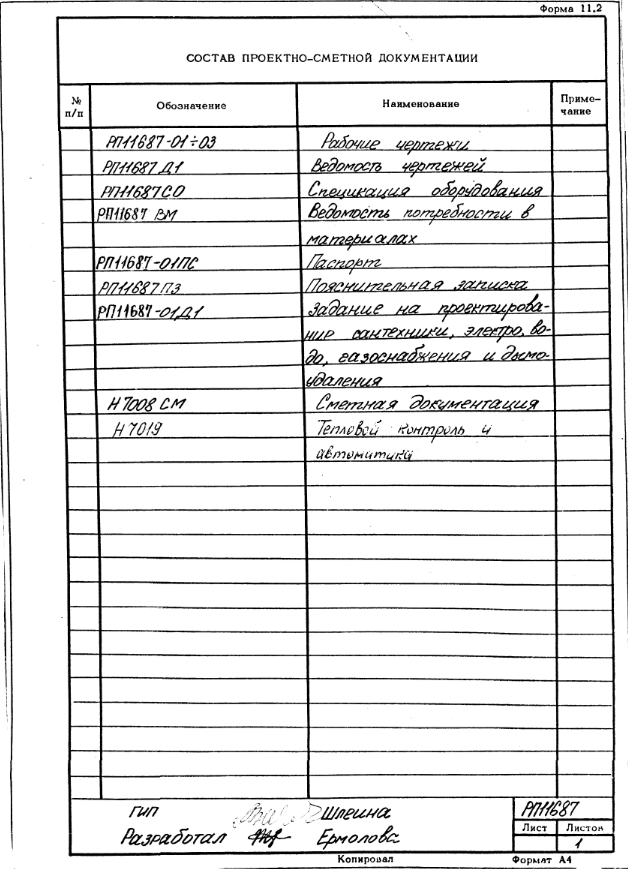 Форма 11.2
СОСТАВ ПРОЕКТНО-СМЕТНОЙ ДОКУМЕНТАЦИИ
№ п/п Обозначение Наименование Приме-
чание
РП11687-01÷03 Рабочие чертежи
РП11687 Д1 Ведомость чертежей
РП11687 СО Специкация оборудования
РП11687 ВМ Ведомость потребности в
материалах
РП11687-01ПС Паспорт
РП11687 ПЗ Пояснительная записка
РП11687-01Д1 Задание на проектирова-
ние сантехники, электро, во-
до, газоснабжения и дымо-
удаления
Н 7008 СМ Сметная документация
Н 7019 Тепловой контроль и
автоматика
ГИП Шлеина
Разработал Ермолова
РП11687
Лист Листов
1
Копировал Формат А4